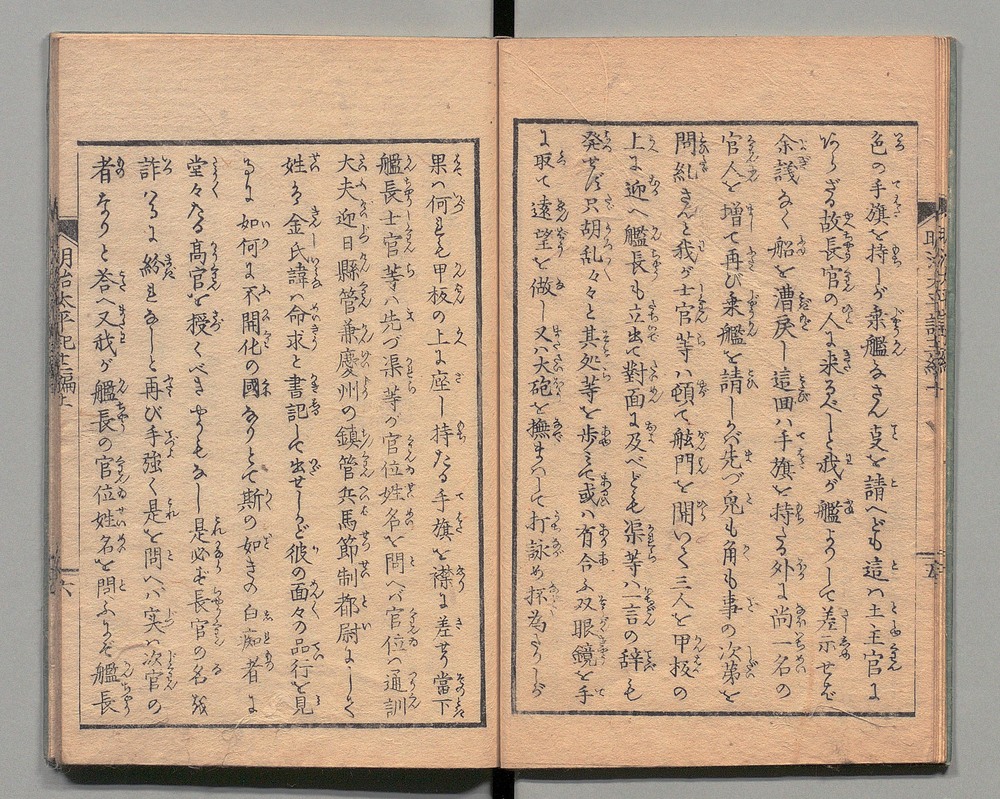 色の手旗を持しが乗艦なさん支を請へども這ハ土主官に
あらざる故長官の人に来るべしと我が艦よりして差示せバ
余議なく船を漕戻し這回ハ手旗を持たる外に尚一名の
官人を増て再び乗艦を請しかバ先づ兎も角も事の次第を
問糺さんと我が士官等ハ頓て舷門を開いて三人を甲板の
上に迎へ艦長も立出て對面に及べども渠等ハ一言の辞も
発せず只胡乱々々と其処等を歩ミて或ハ有合ふ双眼鏡を手
に取て遠望を做し又ハ大砲を撫まハして打詠め
果ハ何れも甲板の上に座し持たる手旗を襟に差せり當下
艦長士官等ハ先づ渠等が官位姓名を問へバ官位ハ通訓
大夫迎日縣管兼慶州の鎮管兵馬節制都尉にして
姓ハ金氏諱ハ命求と書記して出せしかど彼の面々の品行を見
るに如何に不開化の國なりとて斯の如きの白痴者に
堂々たる髙官を授くべきやうもなし是必ず長官の名を
詐ハるに紛れなしと再び手強く是を問へバ実ハ次官の
者なりと荅へ又我が艦長の官位姓名を問ふにぞ艦長
明治太平記十一編
六